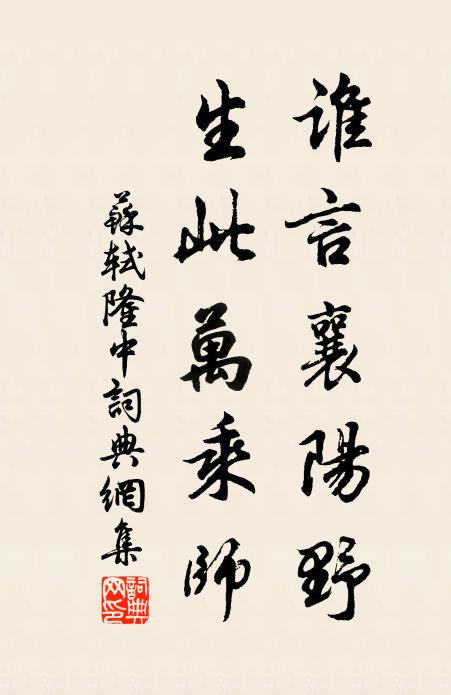 誰言襄陽野
生此萬乘師
蘇軾隆中詞典網集
詞典
网印